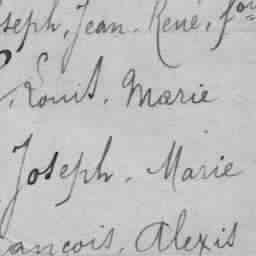 oseph, Jean-René, fou
Louis. Marie
Joseph. Marie
ancois. Alexis